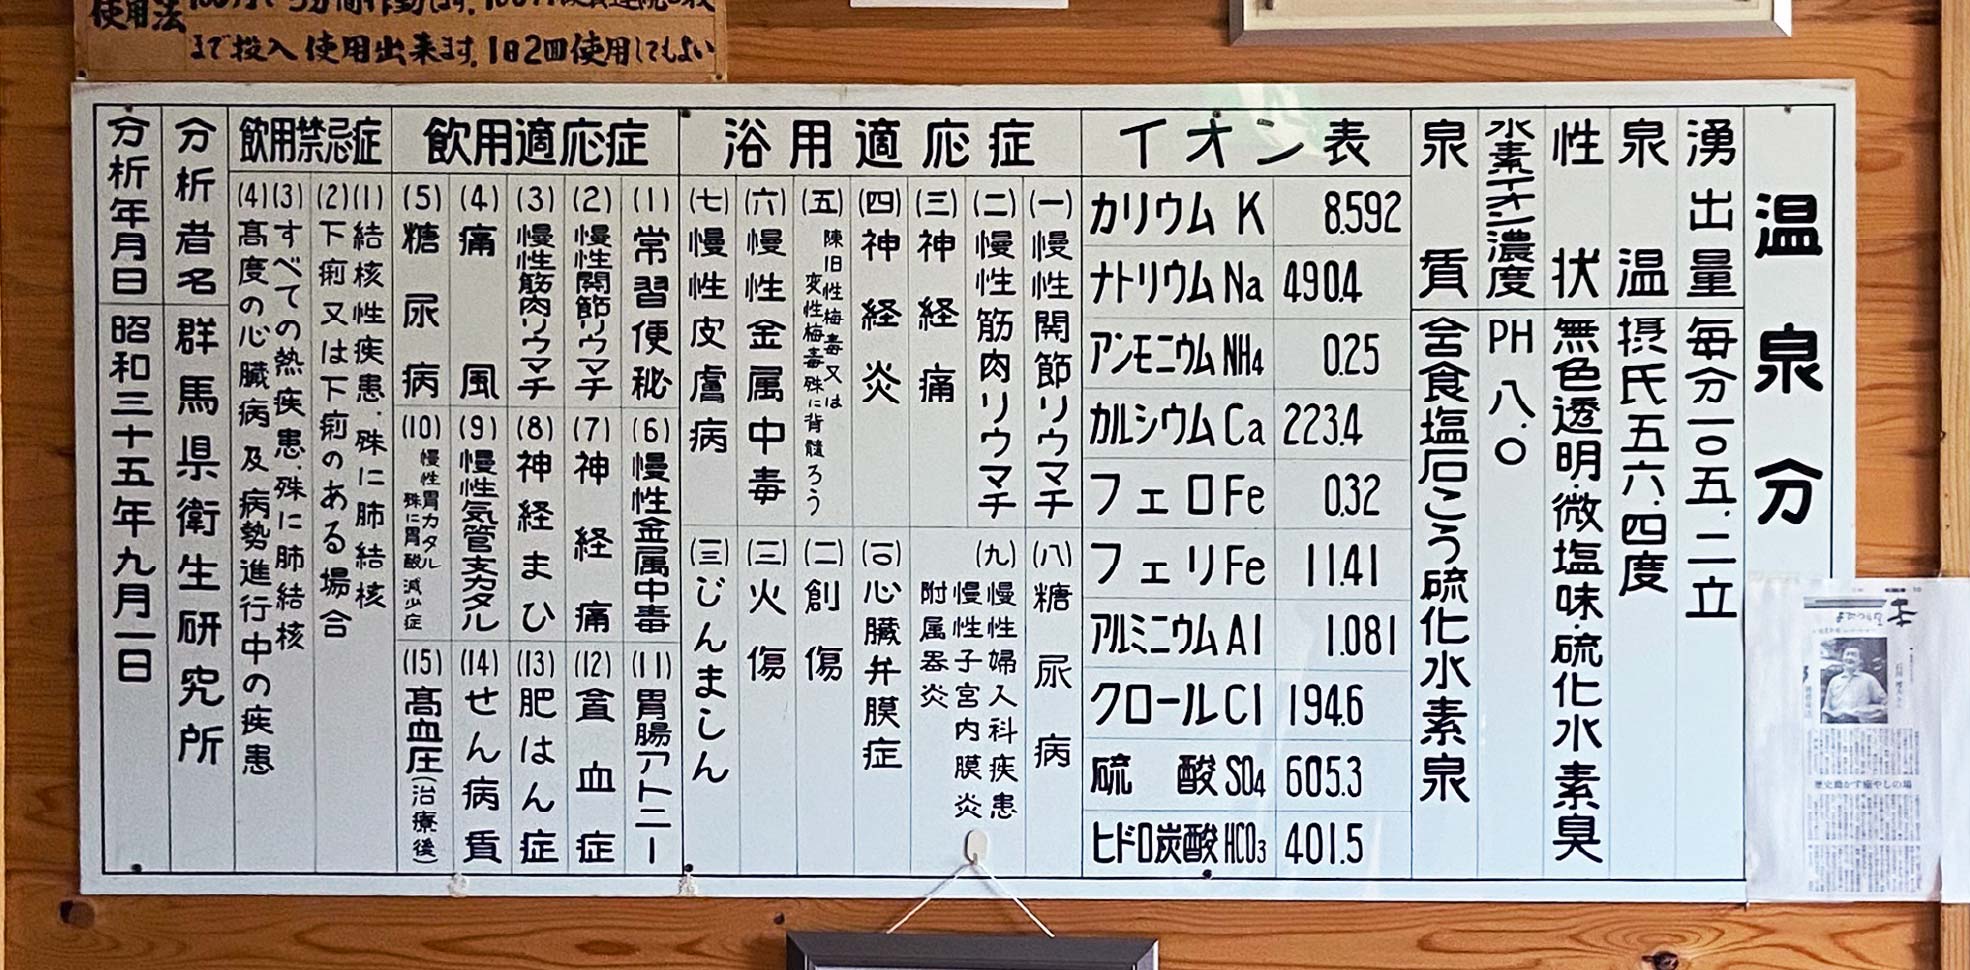 使用法
まで投入使用出来ます。1日2回使用してもよい
温泉分
湧出量 毎分一〇五.二立
泉温 摂氏五六.四度
性状 無色透明.微塩味.硫化水素臭
水素イオン濃度 PH 八.〇
泉質 含食塩石こう硫化水素泉
イオン表
カリウム K 8.592
ナトリウム Na 490.4
アンモニウム NH4 0.25
カルシウム Ca 223.4
フェロ Fe 0.32
フェリ Fe 11.41
アルミニウム Al 1.081
クロール Cl 194.6
硫酸 SO4 605.3
ヒドロ炭酸 HCO3 401.5
浴用適応症
(一) 慢性関節リウマチ
(二) 慢性筋肉リウマチ
(三) 神経痛
(四) 神経炎
(五) 陳旧性梅毒又は
変性梅毒殊に背髄ろう
(六) 慢性金属中毒
(七) 慢性皮膚病
(八) 糖尿病
(九) 慢性婦人科疾患
慢性子宮内膜炎
附属器炎
(一〇) 心臓弁膜症
(一一) 創傷
(一二) 火傷
(一三) じんましん
飲用適応症
(1) 常習便秘
(2) 慢性関節リウマチ
(3) 慢性筋肉リウマチ
(4) 痛風
(5) 糖尿病
(6) 慢性金属中毒
(7) 神経痛
(8) 神経まひ
(9) 慢性気管支カタル
(10) 慢性胃カタル
殊に胃酸減少症
(11) 胃腸アトニー
(12) 貧血症
(13) 肥はん症
(14) せん病質
(15) 高血圧(治療後)
飲用禁忌症
(1) 結核性疾患.殊に肺結核
(2) 下痢又は下痢のある場合
(3) すべての熱疾患.殊に肺結核
(4) 高度の心臓病及病勢進行中の疾患
分析者名 群馬県衛生研究所
分析年月日 昭和三十五年九月一日
歴史動かす癒やしの場